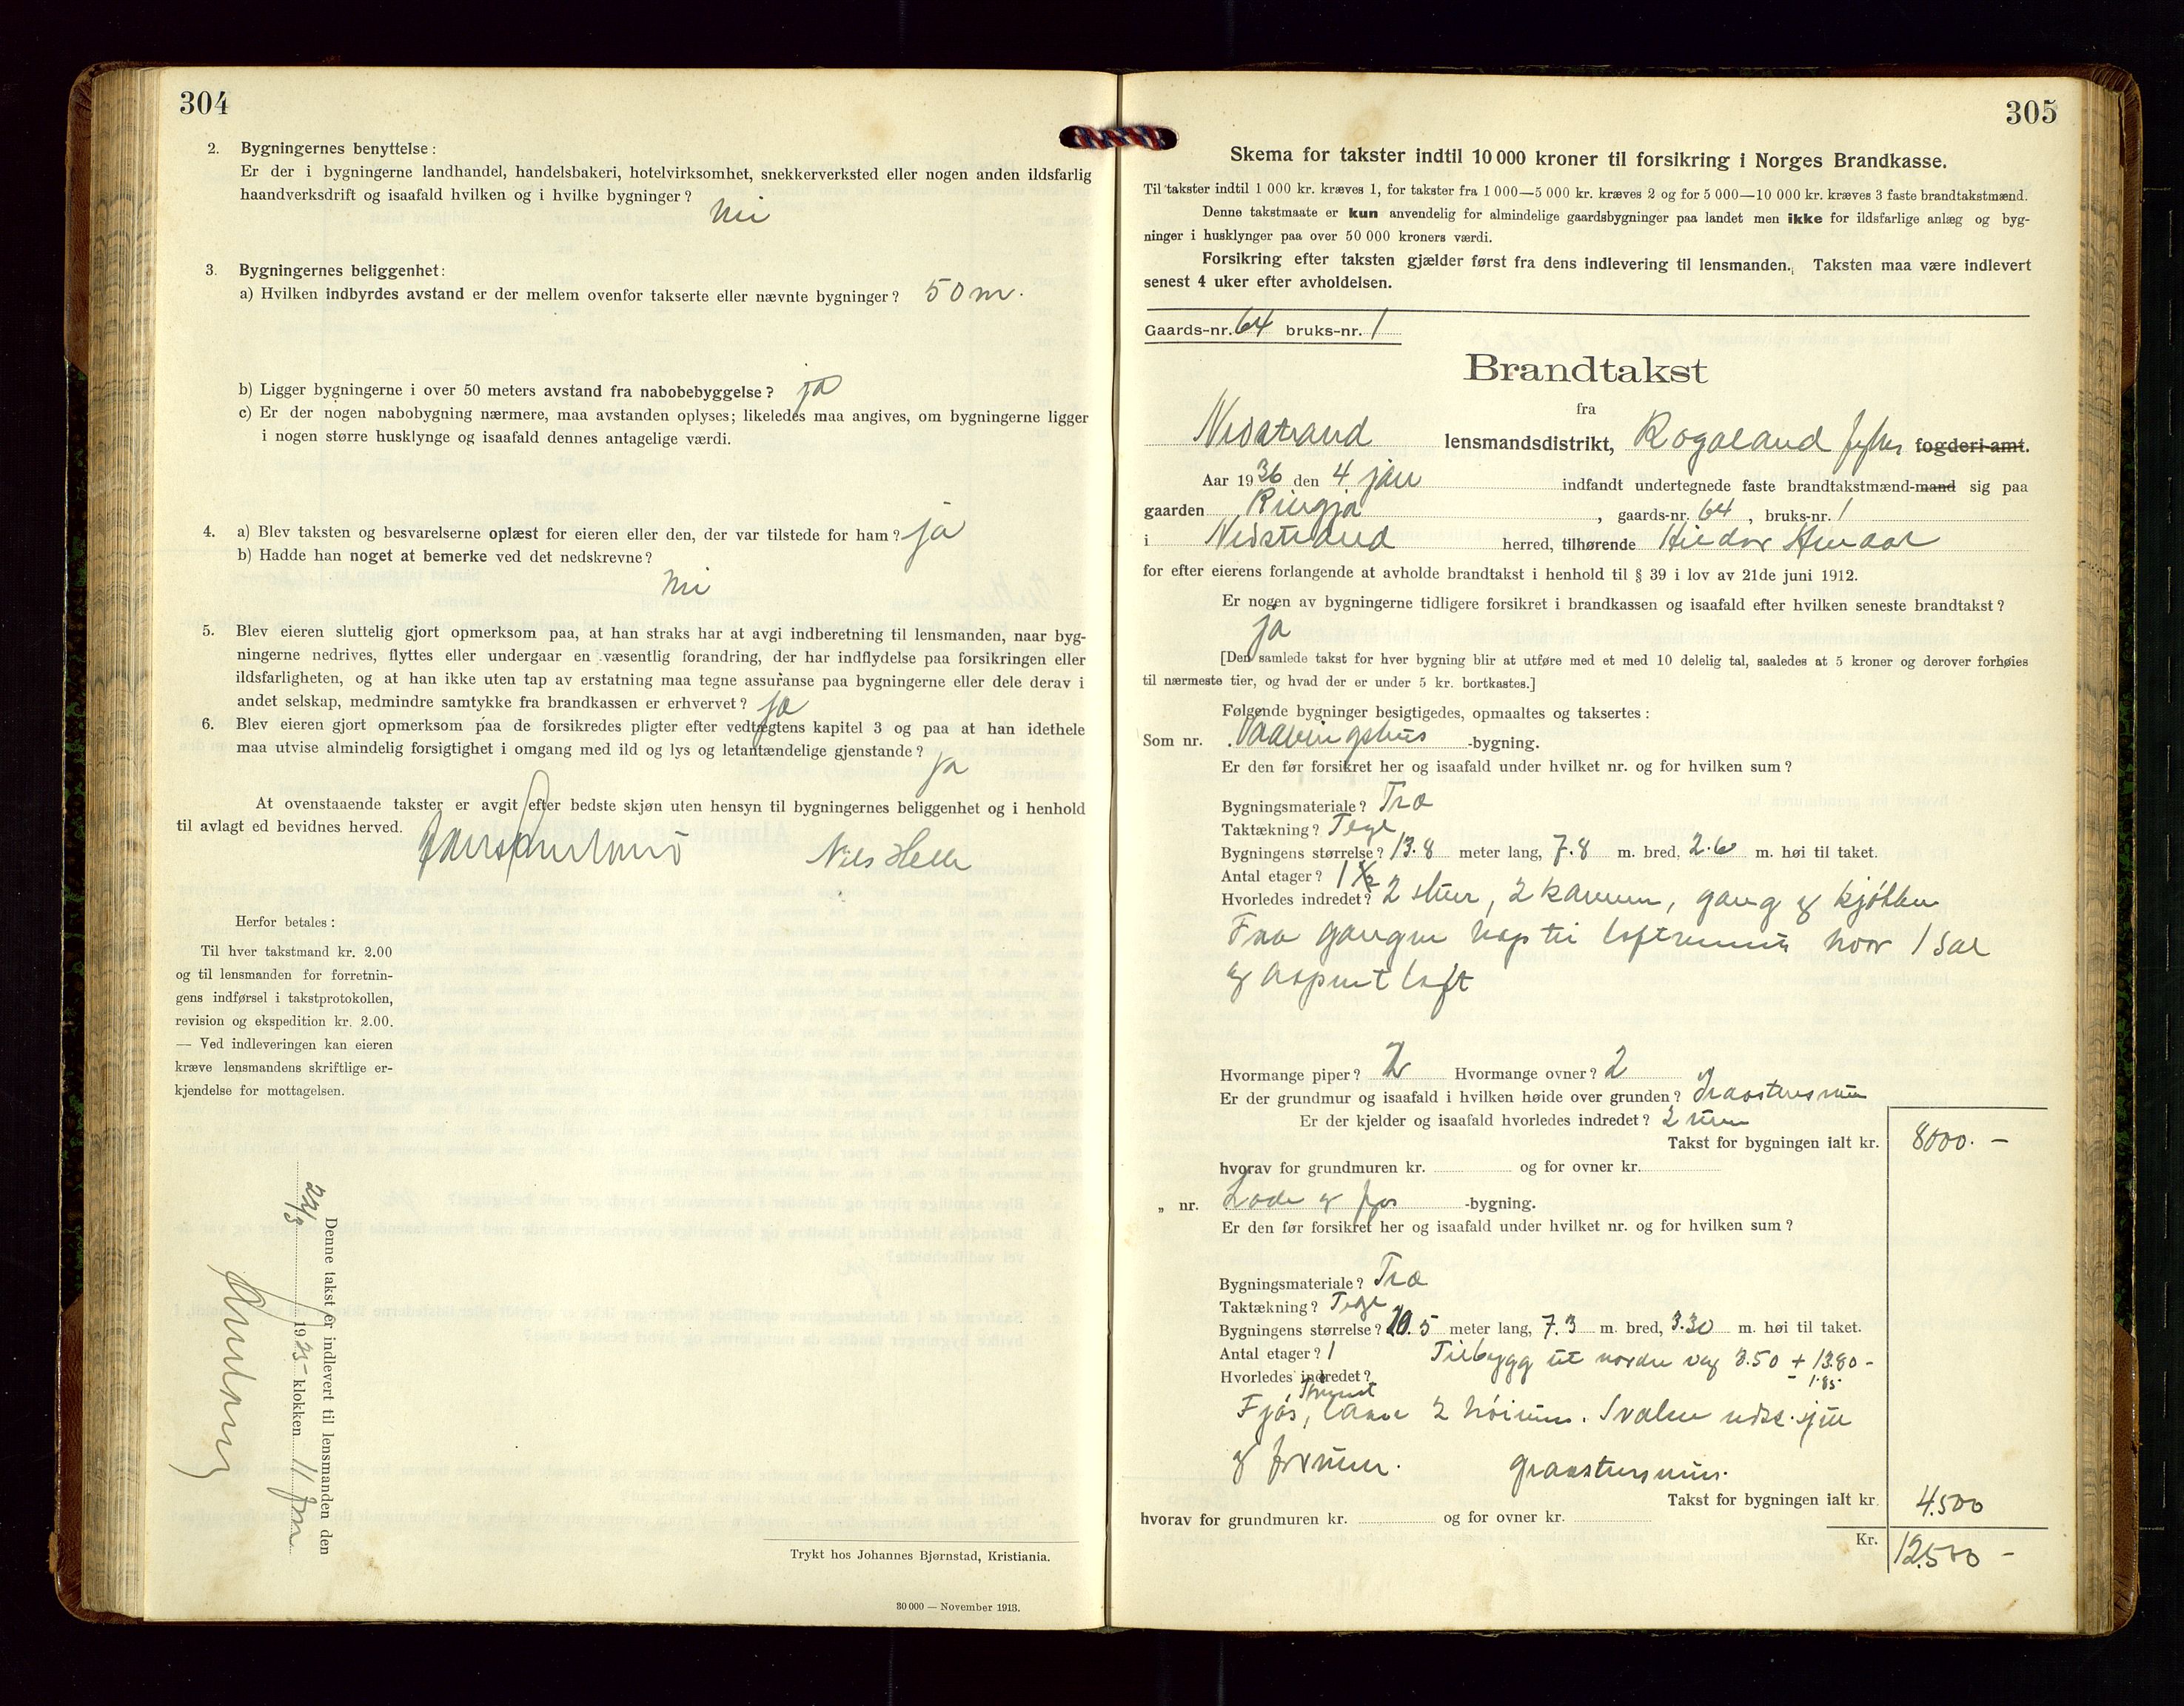 304
2. Bygningernes benyttelse:
Er der i bygningerne landhandel, handelsbakeri, hotelvirksomhet, snekkerverksted eller nogen anden ildsfarlig
haandverksdrift og isaafald hvilken og i hvilke bygninger? Nei
3. Bygningernes beliggenhet:
a) Hvilken indbyrdes avstand er der mellem ovenfor takserte eller nævnte bygninger? 50 m.
b) Ligger bygningerne i over 50 meters avstand fra nabobebyggelse? ja
c) Er der nogen nabobygning nærmere, maa avstanden oplyses; likeledes maa angives, om bygningerne ligger
i nogen større husklynge og isaafald dennes antagelige værdi.
4. a) Blev taksten og besvarelserne oplæst for eieren eller den, der var tilstede for ham? ja
b) Hadde han noget at bemerke ved det nedskrevne?
Nei
5. Blev eieren sluttelig gjort opmerksom paa, at han straks har at avgi indberetning til lensmanden, naar byg-
ningerne nedrives, flyttes eller undergaar en væsentlig forandring, der har indflydelse paa forsikringen eller
ildsfarligheten, og at han ikke uten tap av erstatning maa tegne assuranse paa bygningerne eller dele derav i
andet selskap, medmindre samtykke fra brandkassen er erhvervet? ja
6. Blev eieren gjort opmerksom paa de forsikredes pligter efter vedtægtens kapitel 3 og paa at han idethele
maa utvise almindelig forsigtighet i omgang med ild og lys og letantændelige gjenstande? ja
At ovenstaaende takster er avgit efter bedste skjøn uten hensyn til bygningernes beliggenhet og i henhold
til avlagt ed bevidnes herved.
Nils Helle
Herfor betales:
Til hver takstmand kr. 2.00
og til lensmanden for forretnin-
gens indførsel i takstprotokollen,
revision og ekspedition kr. 2.00.
— Ved indleveringen kan eieren
kræve lensmandens skriftlige er-
kjendelse for mottagelsen.
Denne takst er indlevert til lensmanden den
klokken 11 fm
Trykt hos Johannes Bjørnstad, Kristiania.
30 000 — November 1913.
305
Skema for takster indtil 10 000 kroner til forsikring i Norges Brandkasse.
Til takster indtil 1 000 kr. kræves 1, for takster fra 1 000—5 000 kr. kræves 2 og for 5 000—10 000 kr. kræves 3 faste brandtakstmænd.
Denne takstmaate er kun anvendelig for almindelige gaardsbygninger paa landet men ikke for ildsfarlige anlæg og byg-
ninger i husklynger paa over 50 000 kroners værdi.
Forsikring efter taksten gjælder først fra dens indlevering til lensmanden. Taksten maa være indlevert
senest 4 uker efter avholdelsen.
Gaards-nr. 64 bruks-nr. 1
Brandtakst
fra
Nedstrand lensmandsdistrikt, Rogaland fylke fogderi-amt.
Aar 1936 den 4 jan indfandt undertegnede faste brandtakstmænd-mand sig paa
gaarden Ringja, gaards-nr. 64, bruks-nr. 1
i Nedstrand herred, tilhørende
for efter eierens forlangende at avholde brandtakst i henhold til § 39 i lov av 21de juni 1912.
Er nogen av bygningerne tidligere forsikret i brandkassen og isaafald efter hvilken seneste brandtakst?
ja
[Den samlede takst for hver bygning blir at utføre med et med 10 delelig tal, saaledes at 5 kroner og derover forhøies
til nærmeste tier, og hvad der er under 5 kr. bortkastes.]
Følgende bygninger besigtigedes, opmaaltes og taksertes:
Som nr. Vaaningshus -bygning.
Er den før forsikret her og isaafald under hvilket nr. og for hvilken sum?
Bygningsmateriale? Træ
Taktækning? Tegl
Bygningens størrelse? 13.8 meter lang, 7.8 m. bred, 2.6 m. høi til taket.
Antal etager? 1 ½
Hvorledes indredet? 2 stuer, 2 kammer, gang og kjøkken
Fra gangen trap til hvor 1 sal
og loft
Hvormange piper? 2 Hvormange ovner? 2
Er der grundmur og isaafald i hvilken høide over grunden? Graastensmur
Er der kjelder og isaafald hvorledes indredet? 2 rum
Takst for bygningen ialt kr. 8000.-
hvorav for grundmuren kr. og for ovner kr.
„ nr. Løde og fjøs -bygning.
Er den før forsikret her og isaafald under hvilket nr. og for hvilken sum?
Bygningsmateriale? Træ
Taktækning? Tegl
Bygningens størrelse? 20.5 meter lang, 7.3 m. bred, 3.30 m. høi til taket.
Antal etager? 1 Tilbygg ut nordre væg 3.50 + 13.80 -
Hvorledes indredet? - 1.85
Fjøs, 2 høirum. Svalen
og forrum. graastensmur.
Takst for bygningen ialt kr. 4.500
hvorav for grundmuren kr. og for ovner kr.
Kr. 12.500 -